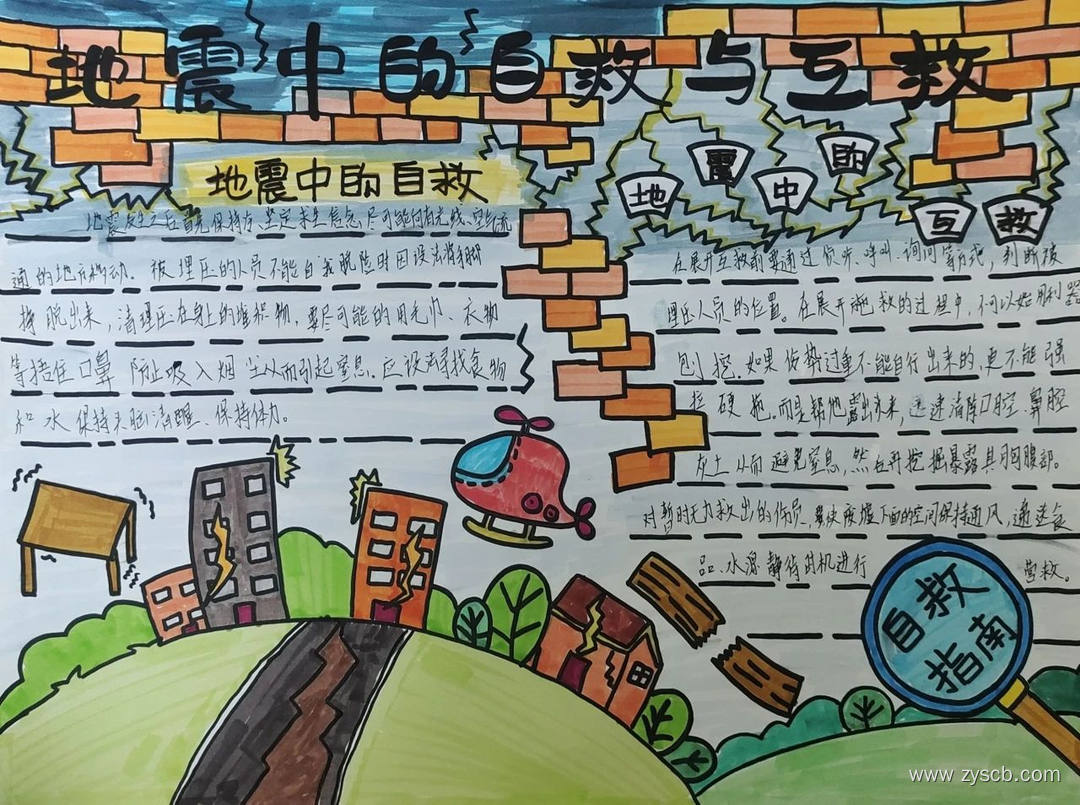 地震中的自救与互救
地震中的自救
地震发生之后首先保持方,坚定求生信念,尽可能向有光线、空气流
通的地方移动。被埋压的人员不能自我脱险时因设法将手脚
挣脱出来,清理压在身上的堆积物,要尽可能的用毛巾、衣物
等捂住口鼻 防止吸入烟尘从而引起窒息.应设法寻找食物
和水 保持头脑清醒、保持体力。
地震中的互救
在展开互救前要通过侦听、呼叫、询问等方式,判断被
埋压人员的位置。在展开施救的过程中,不可以用利器
刨挖.如果伤势过重不能自行出来的,更不能强
拉硬拖,而是帮他露出头来,迅速清除口腔、鼻腔
灰土 从而避免窒息,然后再挖掘暴露其胸腹部。
对暂时无力救出的伤员,要使废墟下面的空间保持通风,递送食
品、水源 静待时机进行营救。
自救
指南
www.zyscb.com